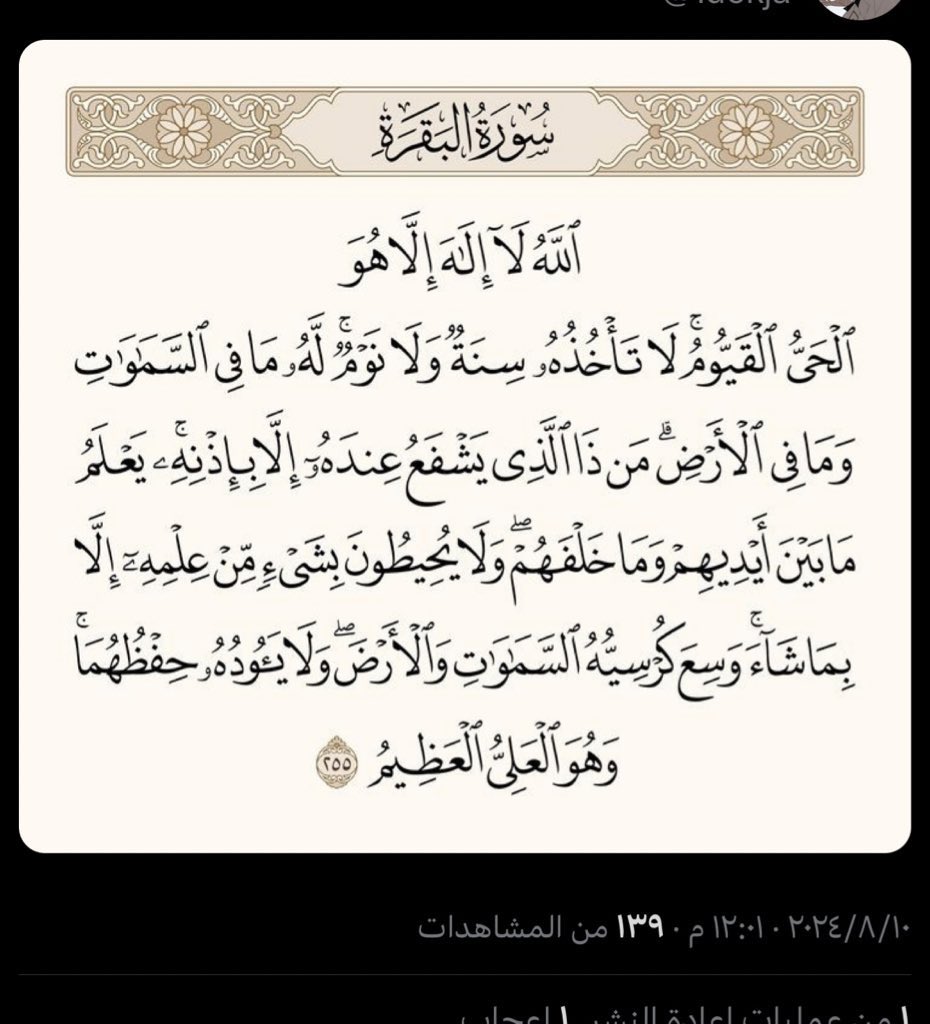 سُورَةُ البَقَرَةِ
ٱللَّهُ لَآ إِلَٰهَ إِلَّا هُوَ
ٱلْحَىُّ ٱلْقَيُّومُ ۚ لَا تَأْخُذُهُۥ سِنَةٌ وَلَا نَوْمٌ ۚ لَّهُۥ مَا فِى ٱلسَّمَٰوَٰتِ
وَمَا فِى ٱلْأَرْضِ ۗ مَن ذَا ٱلَّذِى يَشْفَعُ عِندَهُۥٓ إِلَّا بِإِذْنِهِۦ ۚ يَعْلَمُ
مَا بَيْنَ أَيْدِيهِمْ وَمَا خَلْفَهُمْ ۖ وَلَا يُحِيطُونَ بِشَىْءٍ مِّنْ عِلْمِهِۦٓ إِلَّا
بِمَا شَآءَ ۚ وَسِعَ كُرْسِيُّهُ ٱلسَّمَٰوَٰتِ وَٱلْأَرْضَ ۖ وَلَا يَـُٔودُهُۥ حِفْظُهُمَا ۚ
وَهُوَ ٱلْعَلِىُّ ٱلْعَظِيمُ ٢٥٥
٢٠٢٤/٨/١٠ · ١٢:٠١ م · ١٣٩ من المشاهدات
١ من عمليات إعادة النشر ١ إعجاب